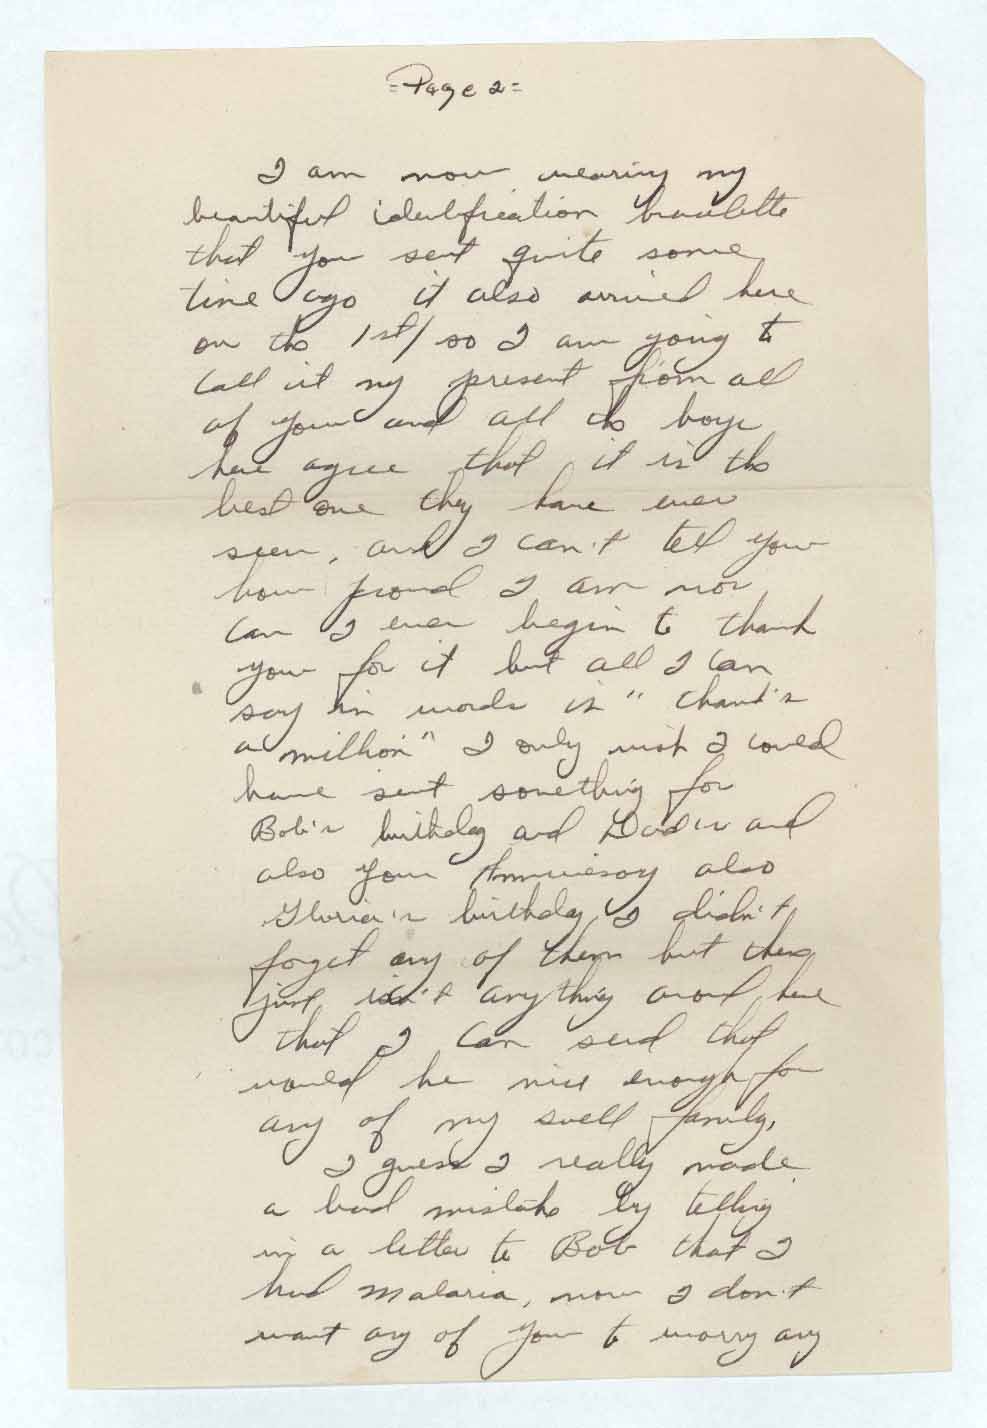 =Page 2=
I am now wearing my
beautiful identification bracelette
that you sent quite some
time ago it also arrived here
on the 1st/ so I am going to
call it my present from all
of you and all the boys
here agree that it is the
best one they have ever
seen, and I can't tell you
how proud I am nor
can I ever begin to thank
you for it but all I can
say in words is " thank's
a million" I only wish I could
have sent something for
Bob's birthday and Dad's and
also your Anniversay also
Gloria's birthday, I didn't
forget any of them but there
just isn't anything around here
that I can send that
would be nice enough for
any of my swell family,
I guess I really made
a bad mistake by telling
in a letter to Bob that I
had malaria, now I don't
want any of you to worry any